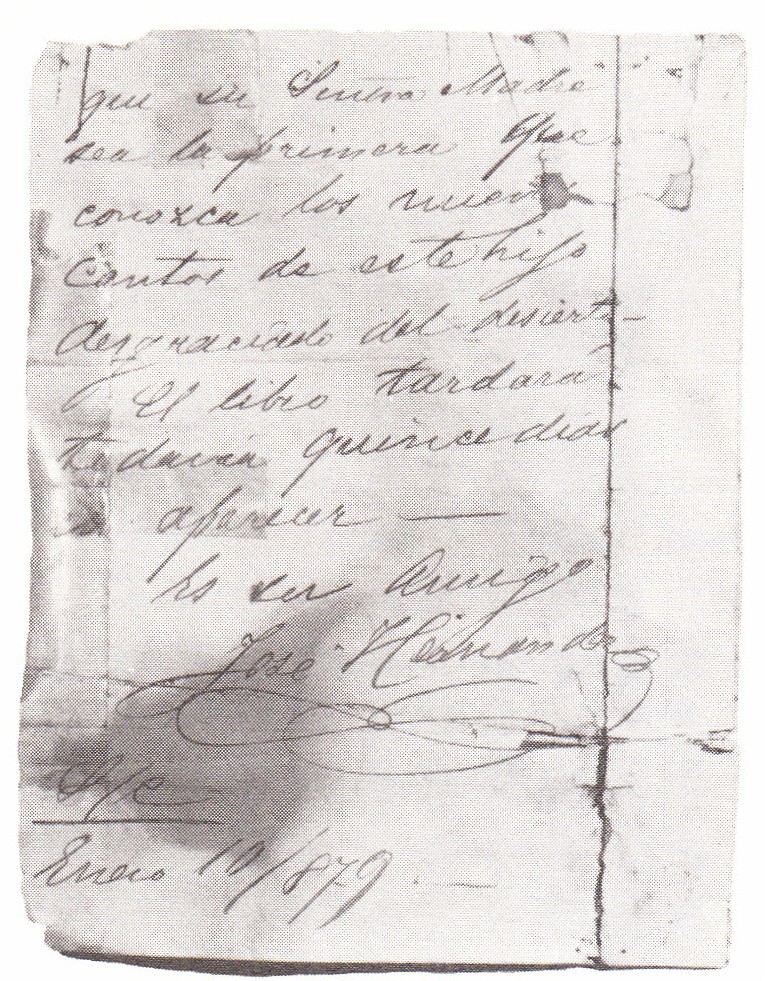 que su Señora Madre
sea la primera que
conozca los nuevos
cantos de este hijo
desgraciado del desierto
El libro tardará
todavia quince dias
a aparecer —
Es su Amigo
José Hernandez
S/c
Enero 10/879